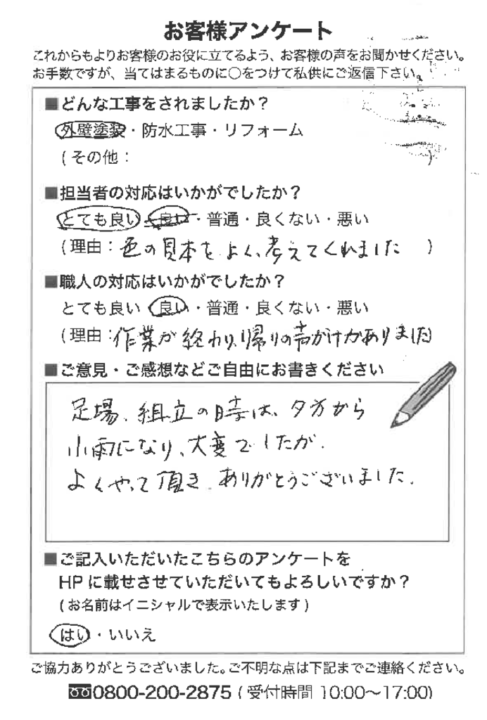 お客様アンケート
これからもよりお客様のお役に立てるよう、お客様の声をお聞かせください。
お手数ですが、当てはまるものに○をつけて私供にご返信下さい。
■どんな工事をされましたか？
外壁塗装・防水工事・リフォーム
(その他： )
■担当者の対応はいかがでしたか？
とても良い・良い・普通・良くない・悪い
(理由：色の見本をよく、考えてくれました )
■職人の対応はいかがでしたか？
とても良い・良い・普通・良くない・悪い
(理由：作業が終わり、帰りの声がけがありました)
■ご意見・ご感想などご自由にお書きください
足場、組立の時は、夕方から
小雨になり、大変でしたが、
よくやって頂き、ありがとうございました。
■ご記入いただいたこちらのアンケートを
HPに載せさせていただいてもよろしいですか？
(お名前はイニシャルで表示いたします)
はい・いいえ
ご協力ありがとうございました。ご不明な点は下記までご連絡ください。
0800-200-2875 (受付時間 10:00〜17:00)